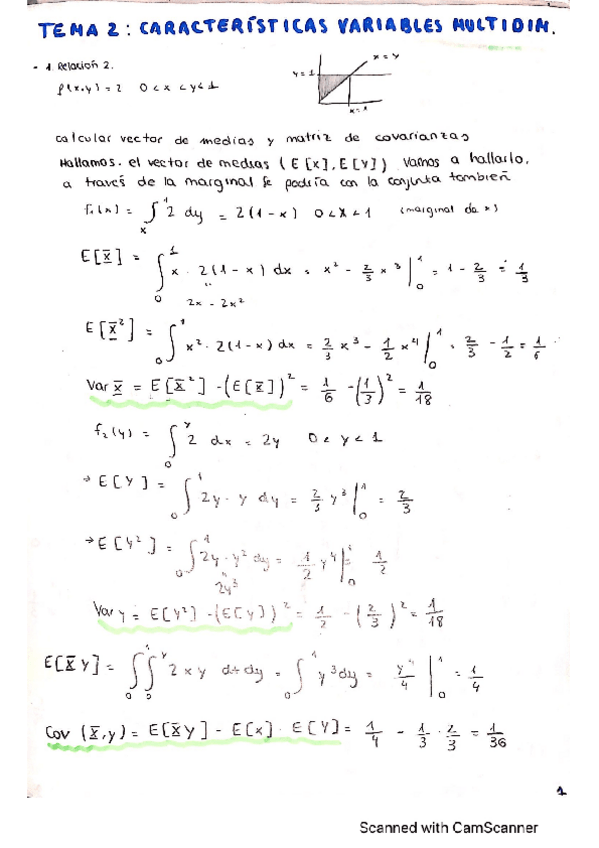 TEMA 2: CARACTERÍSTICAS VARIABLES MULTIDIM.
- 1. Relación 2.
f(x,y) = 2 0 < x < y < 1
y = 1 x = y
x = 1
calcular vector de medias y matriz de covarianzas
Hallamos. el vector de medias (E[x], E[Y]) Vamos a hallarlo,
a través de la marginal se podría con la conjunta también
f₁(x) = ∫ₓ¹ 2 dy = 2(1-x) 0<x<1 (marginal de x)
E[X̄] = ∫₀¹ x · 2(1-x) dx = x² - 2/3 x³ |₀¹ = 1 - 2/3 = 1/3
2x - 2x²
E[X̄²] = ∫₀¹ x² · 2(1-x) dx = 2/3 x³ - 1/2 x⁴ |₀¹ = 2/3 - 1/2 = 1/6
Var X̄ = E[X̄²] - (E[X̄])² = 1/6 - (1/3)² = 1/18
f₂(y) = ∫₀ʸ 2 dx = 2y 0 < y < 1
→ E[Y] = ∫₀¹ 2y · y dy = 2/3 y³ |₀¹ = 2/3
→ E[Y²] = ∫₀¹ 2y · y² dy = 1/2 y⁴ |₀¹ = 1/2
2y³
Var Y = E[Y²] - (E[Y])² = 1/2 - (2/3)² = 1/18
E[X̄Y] = ∫₀¹ ∫₀ʸ 2xy dx dy = ∫₀¹ y³ dy = y⁴/4 |₀¹ = 1/4
Cov (X̄,y) = E[X̄Y] - E[x] · E[Y] = 1/4 - 1/3 · 2/3 = 1/36
1
Scanned with CamScanner